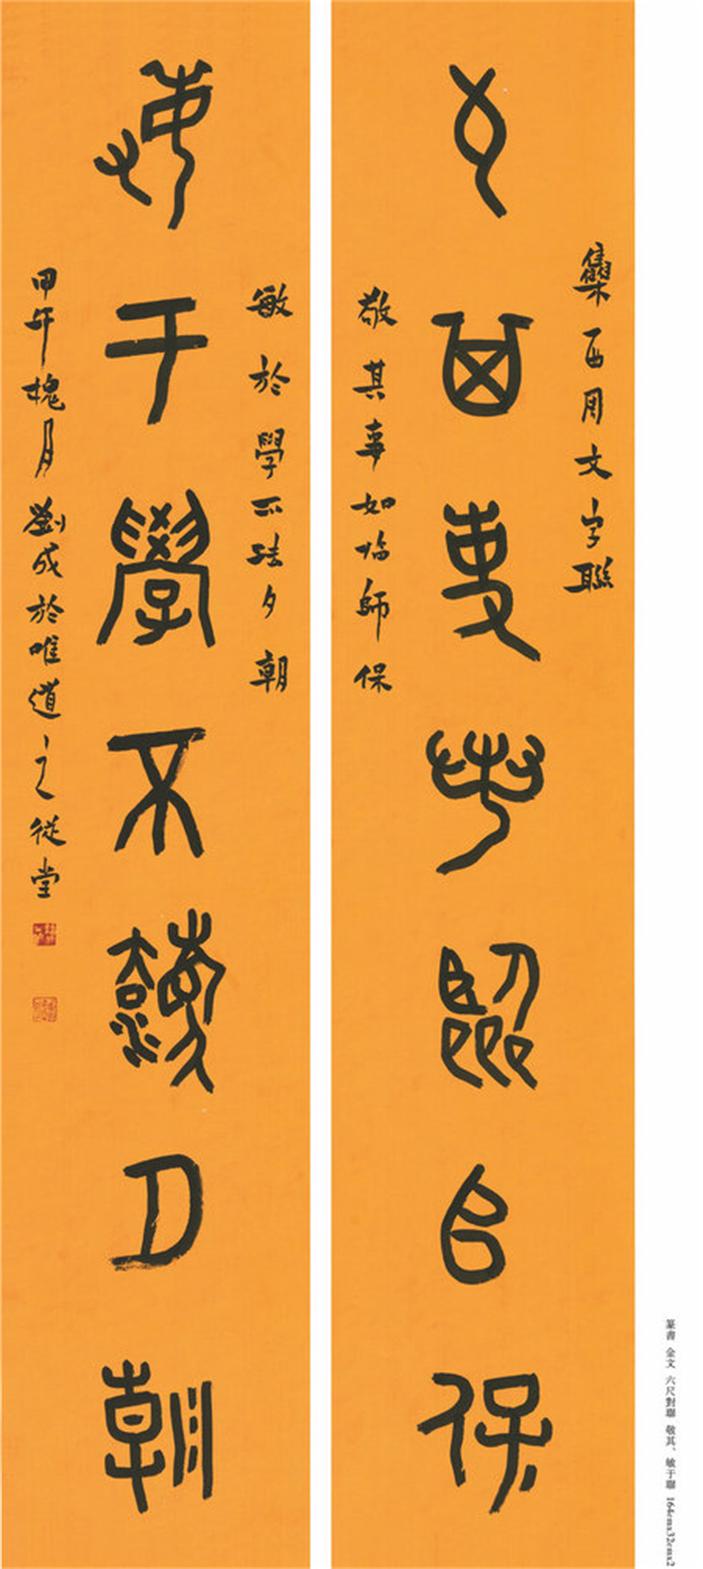 集西周文字聯
敬其事如臨師保
敬其事如临師保
敏於學不法夕朝
敏于學不灋夕朝
甲午槐月劉成於唯道之從堂
篆書 金文 六尺對聯 敬其、敏于聯 164cmx32cmx2